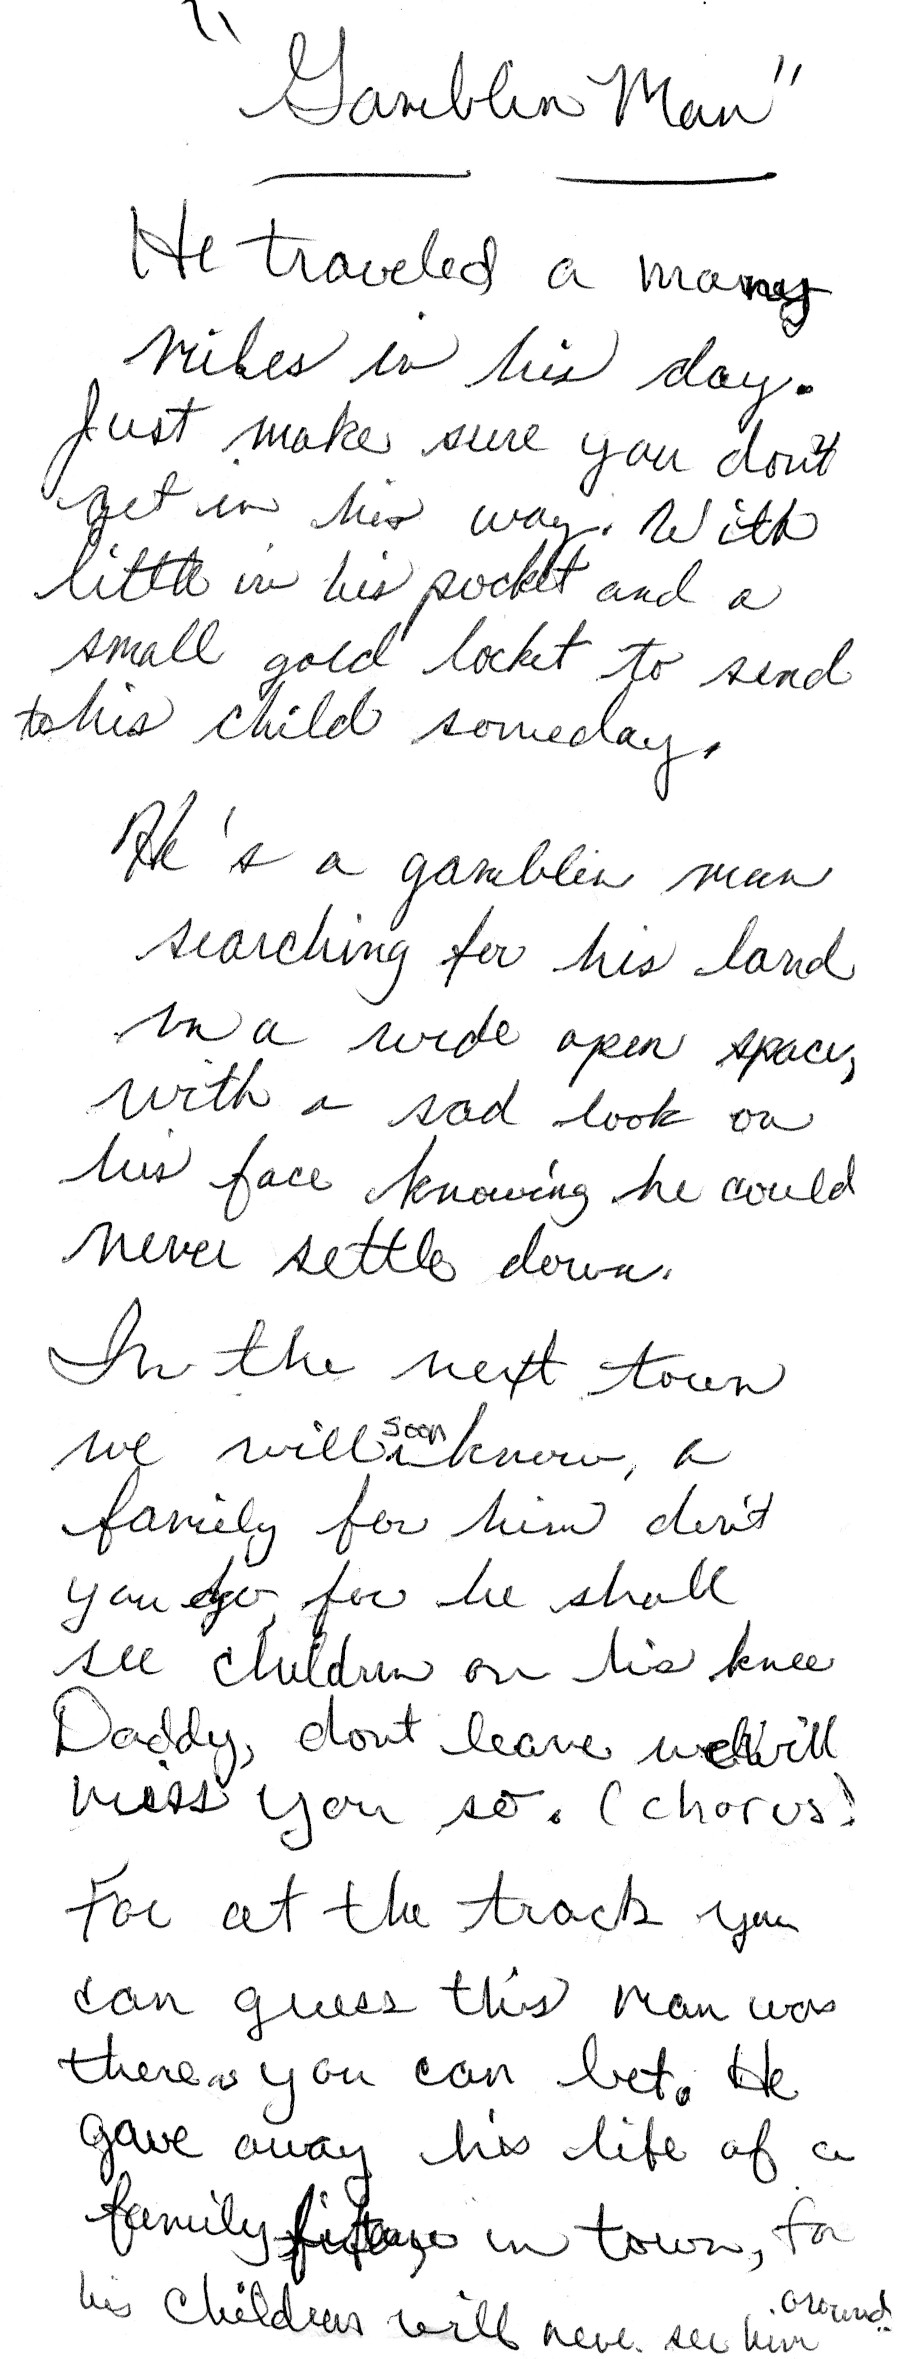 "Gamblin Man"
He traveled a many
miles in his day.
Just make sure you don't
get in his way. With
little in his pocket and a
small gold locket to send
to his child someday.
He's a gamblin man
searching for his land
in a wide open space,
with a sad look on
his face knowing he could
never settle down.
In the next town
we will soon know, a
family for him don't
you go, for he shall
see children on his knee
Daddy, dont leave we will
miss you so. (chorus)
For at the track you
can guess this man was
there you can bet. He
gave away his life of a
family in town, for
his children will never see him around.